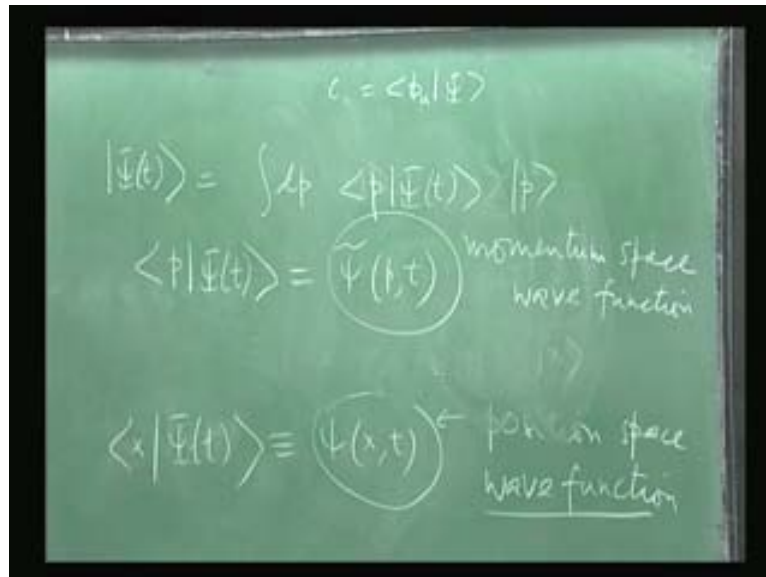 c. = <ϕₙ|Ψ>
|Ψ(t)> = ∫dp <p|Ψ(t)> |p>
<p|Ψ(t)> = ψ̃(p,t) momentum space
wave function
|x>
<x|Ψ(t)> ≡ ψ(x,t) ← position space
wave function